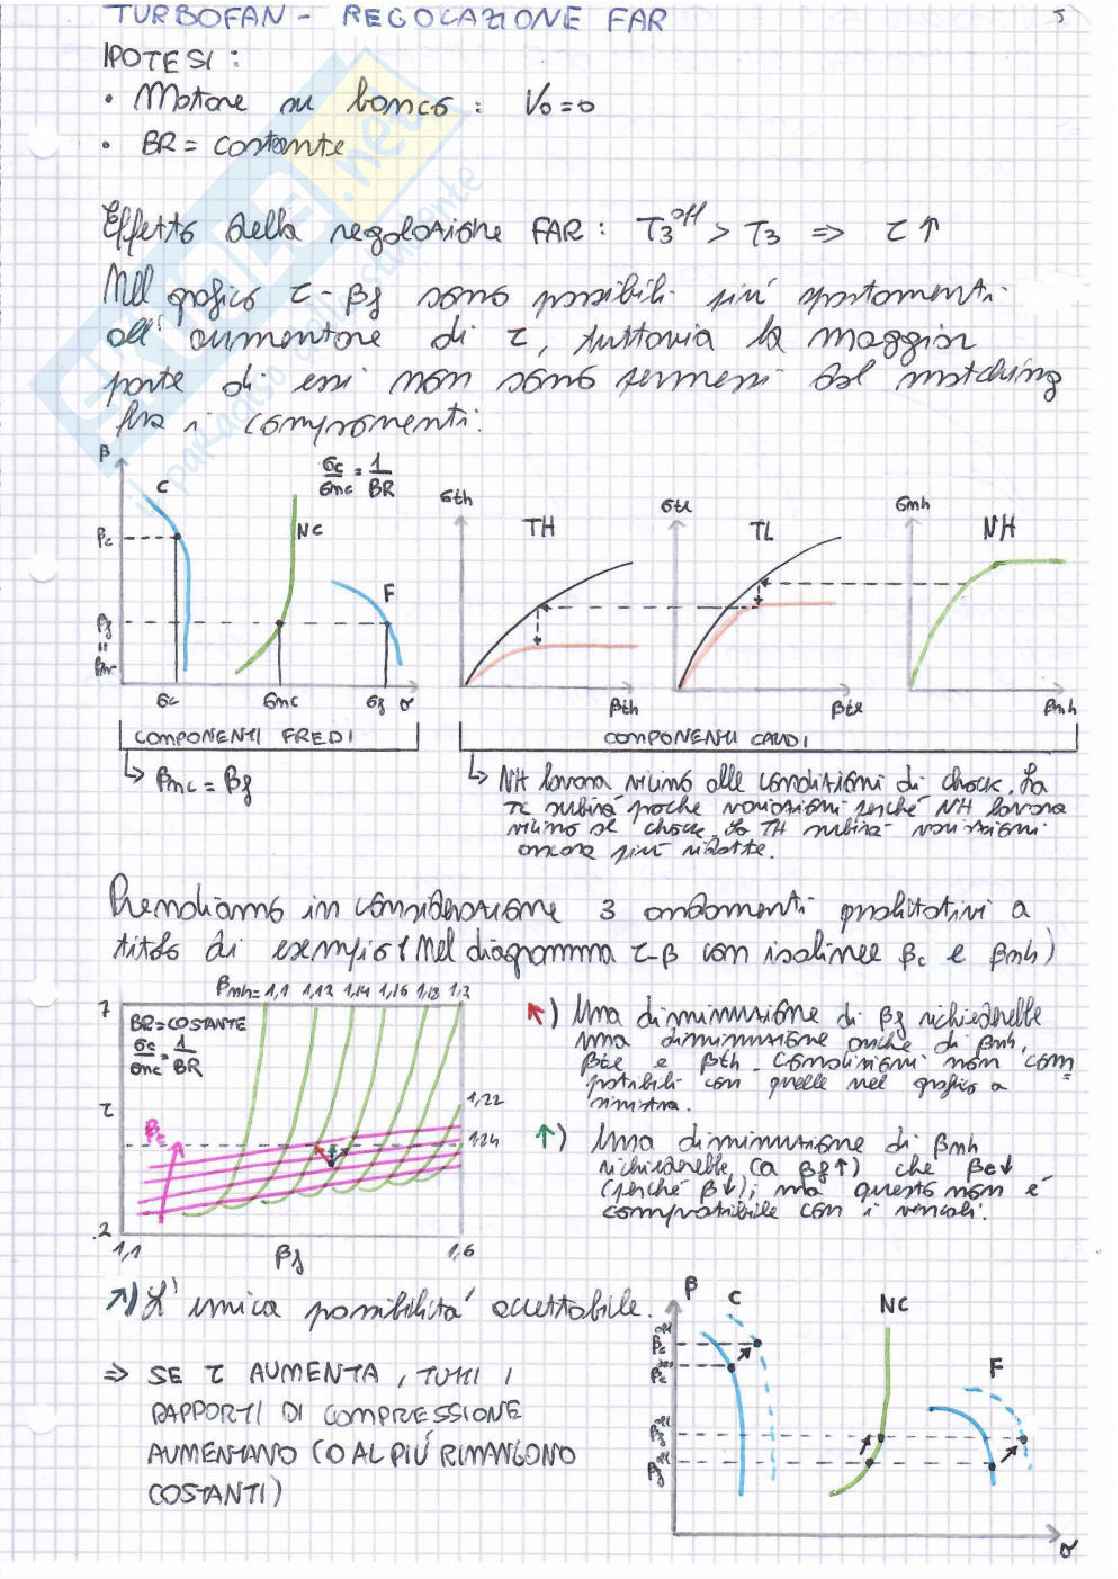 TURBOFAN - REGOLAZIONE FAR
5
IPOTESI:
• Motore su banco: V₀=0
• BR = costante
Effetto della regolazione FAR: T₃ᵒᶠᶠ > T₃ ⇒ τ↑
Nel grafico τ-βf sono possibili più spostamenti
all'aumentare di τ, tuttavia la maggior
parte di essi non sono permessi dal matching
fra i componenti:
β
C
σc/σnc = 1/BR
NC
βc
F
βf
=
βnc
σc σnc σf σ
σth
TH
βth
σtl
TL
βtl
σnh
NH
βnh
COMPONENTI FREDI
COMPONENTI CALDI
↳ βnc = βf
↳ NH lavora vicino alle condizioni di chock. La
TL subirà poche variazioni perché NH lavora
vicino al chock. La TH subirà variazioni
ancora più ridotte.
Prendiamo in considerazione 3 andamenti qualitativi a
titolo di esempio (Nel diagramma τ-β con isolinee βc e βnh)
βnh = 1,1 1,12 1,14 1,16 1,18 1,2
7
BR=COSTANTE
σc/σnc = 1/BR
τ
βc
1,22
1,24
2
1,1
βf
1,6
↖) Una diminuzione di βf richiederebbe
una diminuzione anche di βnh,
βtl e βth. Condizioni non com=
patibili con quelle nel grafico a
sinistra.
↑) Una diminuzione di βnh
richiederebbe (a βf↑) che βc↓
(perché β↓); ma questo non è
compatibile con i vincoli.
↗) L'unica possibilità accettabile.
⇒ SE τ AUMENTA, TUTTI I
RAPPORTI DI COMPRESSIONE
AUMENTANO (O AL PIÚ RIMANGONO
COSTANTI)
β
C
NC
F
σ